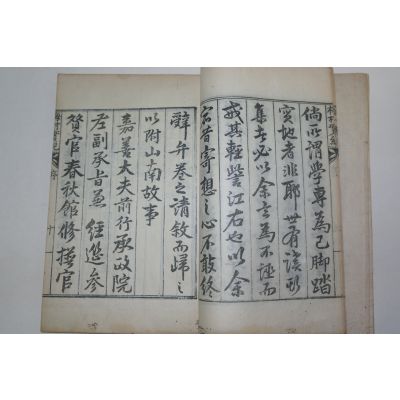 倘所謂學專為己脚踏
實地者非耶世有讀斯
集者必以余言為不誣而
或其輕訾江右也以余
宿昔寄想之心不敢終
辭弁卷之請敘而歸之
以附山南故事
嘉善大夫前行承政院
左副承旨兼 經筵參
贊官春秋館修撰官